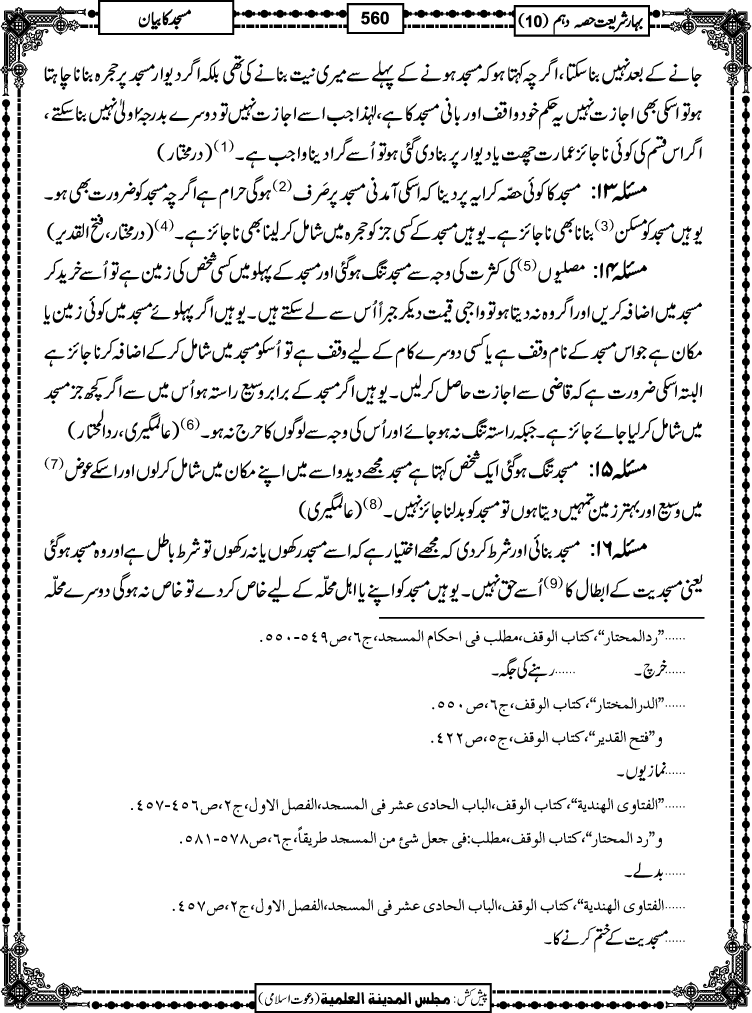 بہار شریعت حصہ دہم (10)
560
مسجد کا بیان
جانے کے بعد نہیں بنا سکتا، اگرچہ کہتا ہو کہ مسجد ہونے کے پہلے سے میری نیت بنانے کی تھی بلکہ اگر دیوار مسجد پر حجرہ بنانا چاہتا
ہو تو اسکی بھی اجازت نہیں یہ حکم خود واقف اور بانی مسجد کا ہے، لہٰذا جب اسے اجازت نہیں تو دوسرے بدرجۂ اولیٰ نہیں بنا سکتے،
اگر اس قسم کی کوئی ناجائز عمارت چھت یا دیوار پر بنا دی گئی ہو تو اُسے گرا دینا واجب ہے۔(1) (درمختار)
مسئلہ ۱۳: مسجد کا کوئی حصّہ کرایہ پر دینا کہ اسکی آمدنی مسجد پر صَرف(2) ہوگی حرام ہے اگرچہ مسجد کو ضرورت بھی ہو۔
یوہیں مسجد کو مسکن(3) بنانا بھی ناجائز ہے۔ یوہیں مسجد کے کسی جز کو حجرہ میں شامل کر لینا بھی ناجائز ہے۔(4) (درمختار، فتح القدیر)
مسئلہ ۱۴: مصلیوں(5) کی کثرت کی وجہ سے مسجد تنگ ہوگئی اور مسجد کے پہلو میں کسی شخص کی زمین ہے تو اُسے خرید کر
مسجد میں اضافہ کریں اور اگر وہ نہ دیتا ہو تو واجبی قیمت دیکر جبراً اُس سے لے سکتے ہیں۔ یوہیں اگر پہلوئے مسجد میں کوئی زمین یا
مکان ہے جو اس مسجد کے نام وقف ہے یا کسی دوسرے کام کے لیے وقف ہے تو اُسکو مسجد میں شامل کر کے اضافہ کرنا جائز ہے
البتہ اسکی ضرورت ہے کہ قاضی سے اجازت حاصل کر لیں۔ یوہیں اگر مسجد کے برابر وسیع راستہ ہو اُس میں سے اگر کچھ جز مسجد
میں شامل کر لیا جائے جائز ہے۔ جبکہ راستہ تنگ نہ ہو جائے اور اُس کی وجہ سے لوگوں کا حرج نہ ہو۔(6) (عالمگیری، ردالمحتار)
مسئلہ ۱۵: مسجد تنگ ہوگئی ایک شخص کہتا ہے مسجد مجھے دیدو اسے میں اپنے مکان میں شامل کر لوں اور اسکے عوض(7)
میں وسیع اور بہتر زمین تمہیں دیتا ہوں تو مسجد کو بدلنا جائز نہیں۔(8) (عالمگیری)
مسئلہ ۱۶: مسجد بنائی اور شرط کر دی کہ مجھے اختیار ہے کہ اسے مسجد رکھوں یا نہ رکھوں تو شرط باطل ہے اور وہ مسجد ہوگئی
یعنی مسجدیت کے ابطال کا(9) اُسے حق نہیں۔ یوہیں مسجد کو اپنے یا اہل محلّہ کے لیے خاص کر دے تو خاص نہ ہوگی دوسرے محلّہ
......"ردالمحتار"، کتاب الوقف، مطلب فی احکام المسجد، ج٦، ص٥٤٩-٥٥٠.
......خرچ۔ ......رہنے کی جگہ۔
......"الدرالمختار"، کتاب الوقف، ج٦، ص٥٥٠.
و"فتح القدیر"، کتاب الوقف، ج٥، ص٤٢٢.
......نمازیوں۔
......"الفتاوی الھندیة"، کتاب الوقف، الباب الحادی عشر فی المسجد، الفصل الاول، ج٢، ص٤٥٦-٤٥٧.
و"رد المحتار"، کتاب الوقف، مطلب:فی جعل شئ من المسجد طریقاً، ج٦، ص٥٧٨-٥٨١.
......بدلے۔
......الفتاوی الھندیة"، کتاب الوقف، الباب الحادی عشر فی المسجد، الفصل الاول، ج٢، ص٤٥٧.
......مسجدیت کے ختم کرنے کا۔
پیش کش: مجلس المدينة العلمية (دعوت اسلامی)